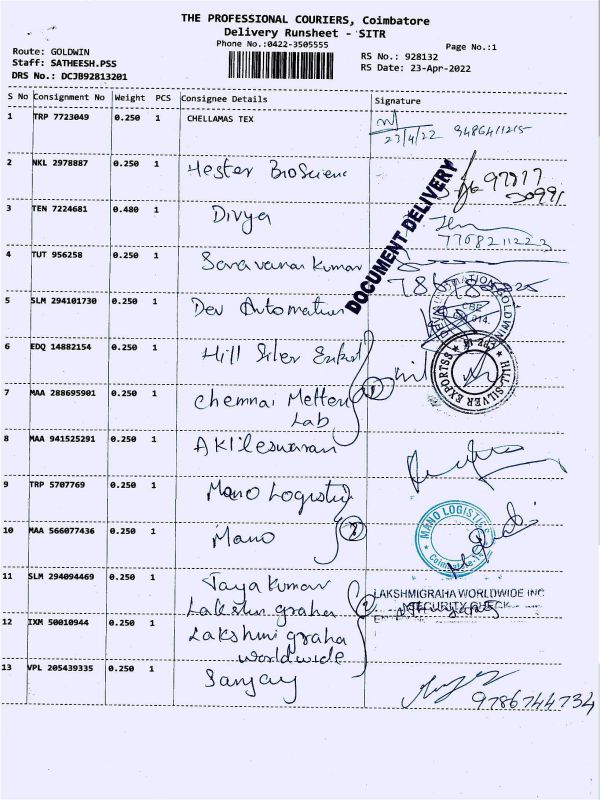 THE PROFESSIONAL COURIERS, Coimbatore
Delivery Runsheet - SITR
Phone No.:0422-3505555
Page No.:1
Route: GOLDWIN
Staff: SATHEESH.PSS
DRS No.: DCJB92813201
RS No.: 928132
RS Date: 23-Apr-2022
S No Consignment No Weight PCS Consignee Details Signature
1 TRP 7723049 0.250 1 CHELLAMAS TEX
23/4/22 9486411215
2 NKL 2978887 0.250 1 Hester BioScienc
DOCUMENT DELIVERY
3 TEN 7224681 0.480 1 Divya
7708211223
4 TUT 956258 0.250 1 Saravanan Kumar
5 SLM 294101730 0.250 1 Dev Automation
6 EDQ 14882154 0.250 1 Hill Silver
HILL SILVER EXPORTSS
7 MAA 288695901 0.250 1 Chennai Metten
Lab
8 MAA 941525291 0.250 1 Akileswaran
9 TRP 5707769 0.250 1 Mano Logistic
10 MAA 566077436 0.250 1 Mano
MANO LOGISTIC
11 SLM 294094469 0.250 1 Jaya Kumar
Lakshmi graha
LAKSHMIGRAHA WORLDWIDE INC
SECURITY CHECK
12 IXM 50010944 0.250 1 Lakshmi graha
worldwide
13 VPL 205439335 0.250 1 Sanjay
9786744734